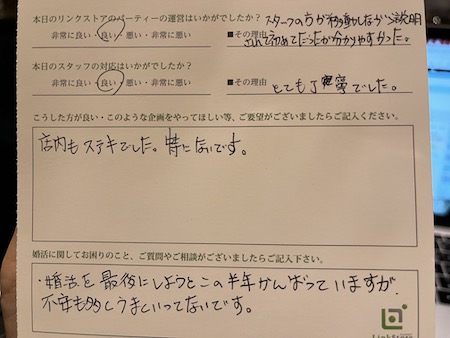 本日のリンクストアのパーティーの運営はいかがでしたか？ スタッフの方が移動しながら説明
非常に良い・良い・悪い・非常に悪い ■その理由 されて初めてだったが分かりやすかった。
本日のスタッフの対応はいかがでしたか？
非常に良い・良い・悪い・非常に悪い ■その理由 とても丁寧でした。
こうした方が良い・このような企画をやってほしい等、ご要望がございましたらご記入ください。
店内もステキでした。特にないです。
婚活に関してお困りのこと、ご質問やご相談がございましたらご記入下さい。
・婚活を最後にしようとこの半年がんばっていますが、
不安も多くうまくいってないです。
LinkStore